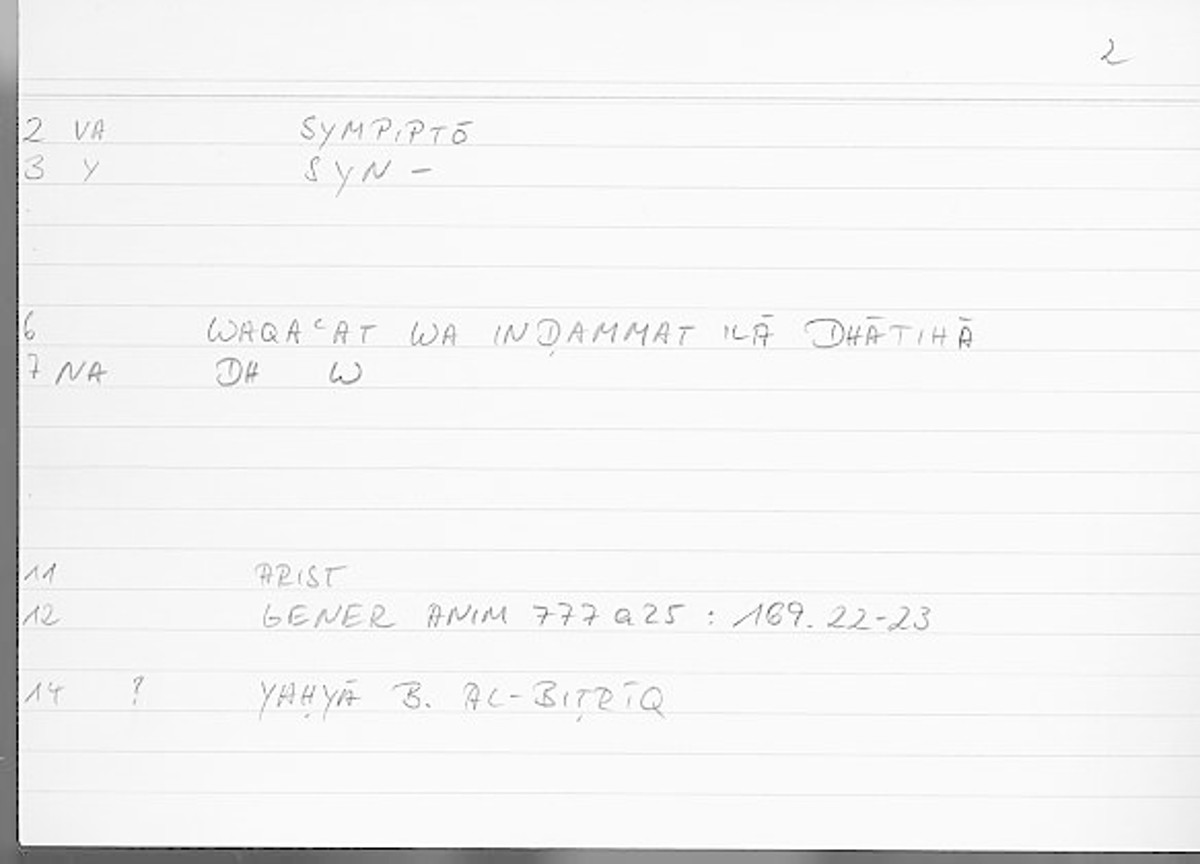 2
2 VA SYMPIPTŌ
3 Y SYN -
6 WAQAʿAT WA INḌAMMAT ILĀ DHĀTIHĀ
7 NA DH W
11 ARIST
12 GENER ANIM 777 a 25 : 169. 22-23
14 ? YAḤYĀ B. AL-BIṬRĪQ